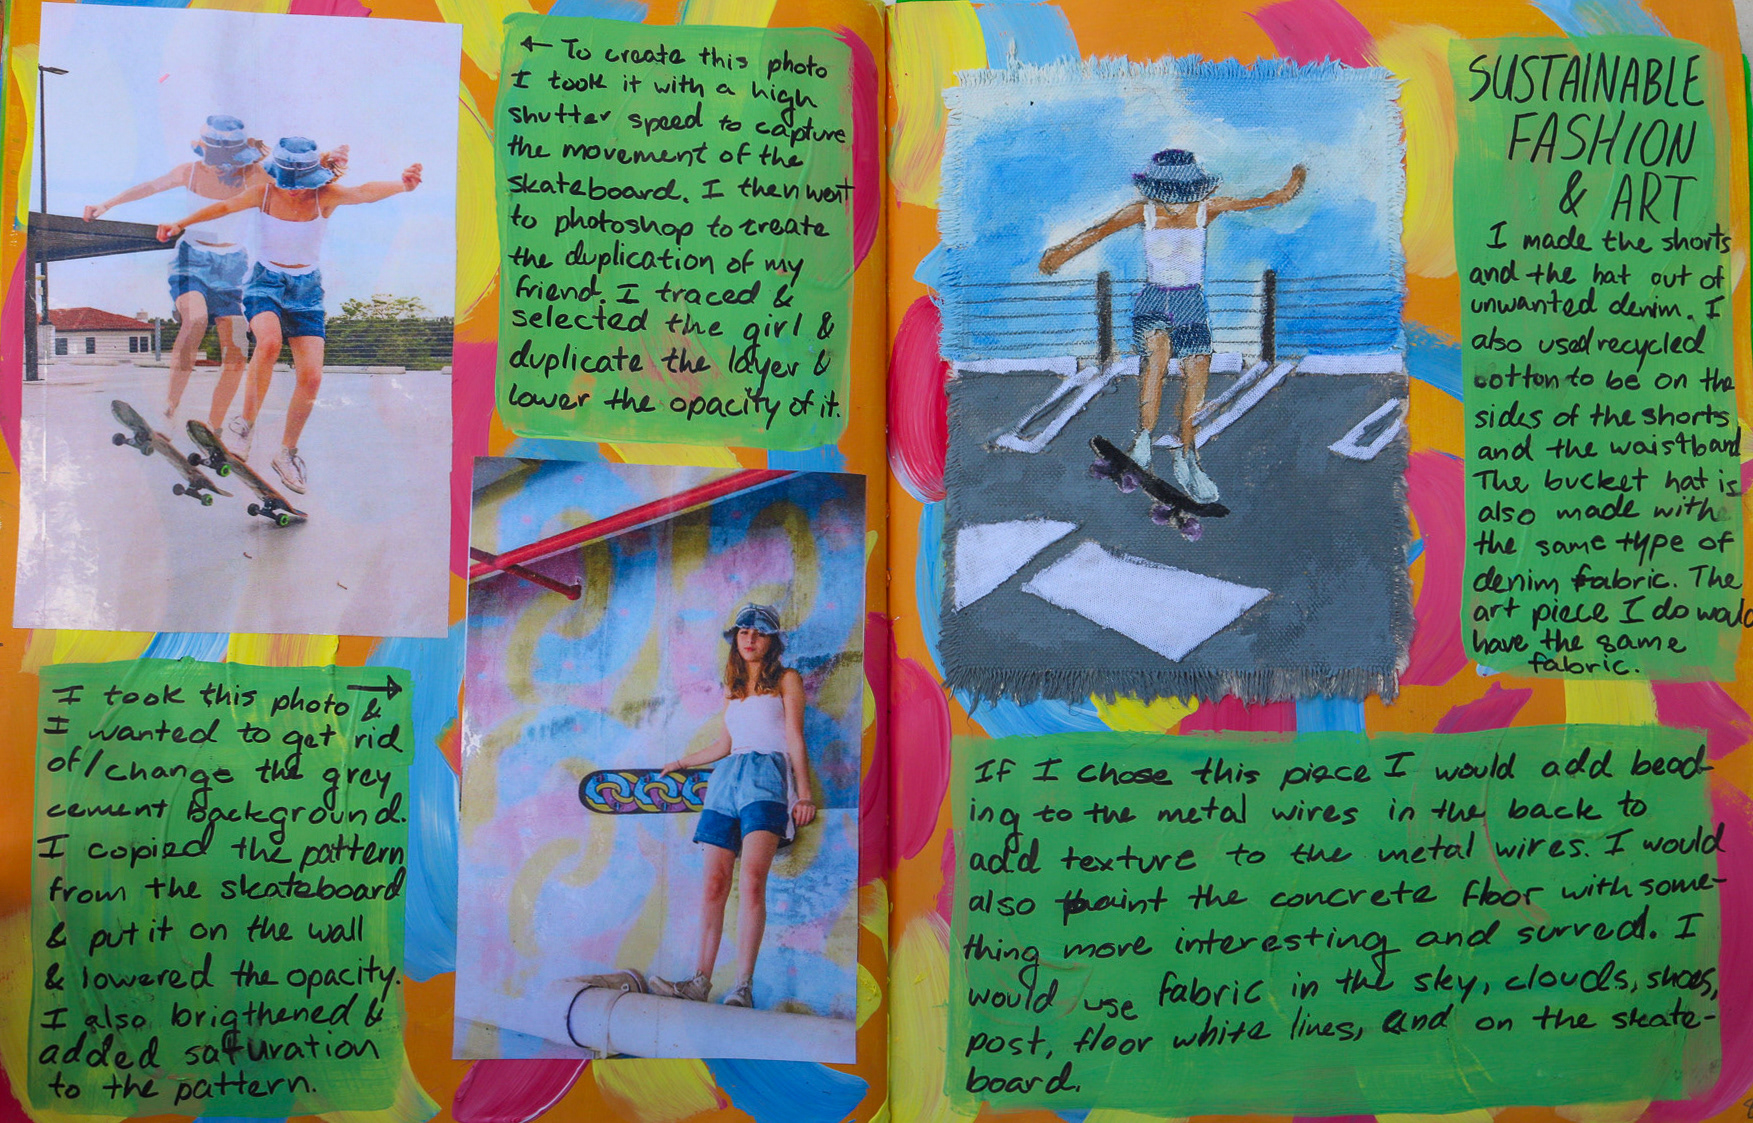 ← To create this photo
I took it with a high
shutter speed to capture
the movement of the
skateboard. I then went
to photoshop to create
the duplication of my
friend. I traced &
selected the girl &
duplicate the layer &
lower the opacity of it.
I took this photo →
& I wanted to get rid
of/change the grey
cement background.
I copied the pattern
from the skateboard
& put it on the wall
& lowered the opacity.
I also brigthened &
added saturation
to the pattern.
SUSTAINABLE
FASHION
& ART
I made the shorts
and the hat out of
unwanted denim. I
also used recycled
cotton to be on the
sides of the shorts
and the waistband
The bucket hat is
also made withe
the same type of
denim fabric. The
art piece I do would
have the same
fabric.
If I chose this piece I would add bead-
ing to the metal wires in the back to
add texture to the metal wires. I would
also paint the concrete floor with some-
thing more interesting and surred. I
would use fabric in the sky, clouds, shoes,
post, floor white lines, and on the skate-
board.